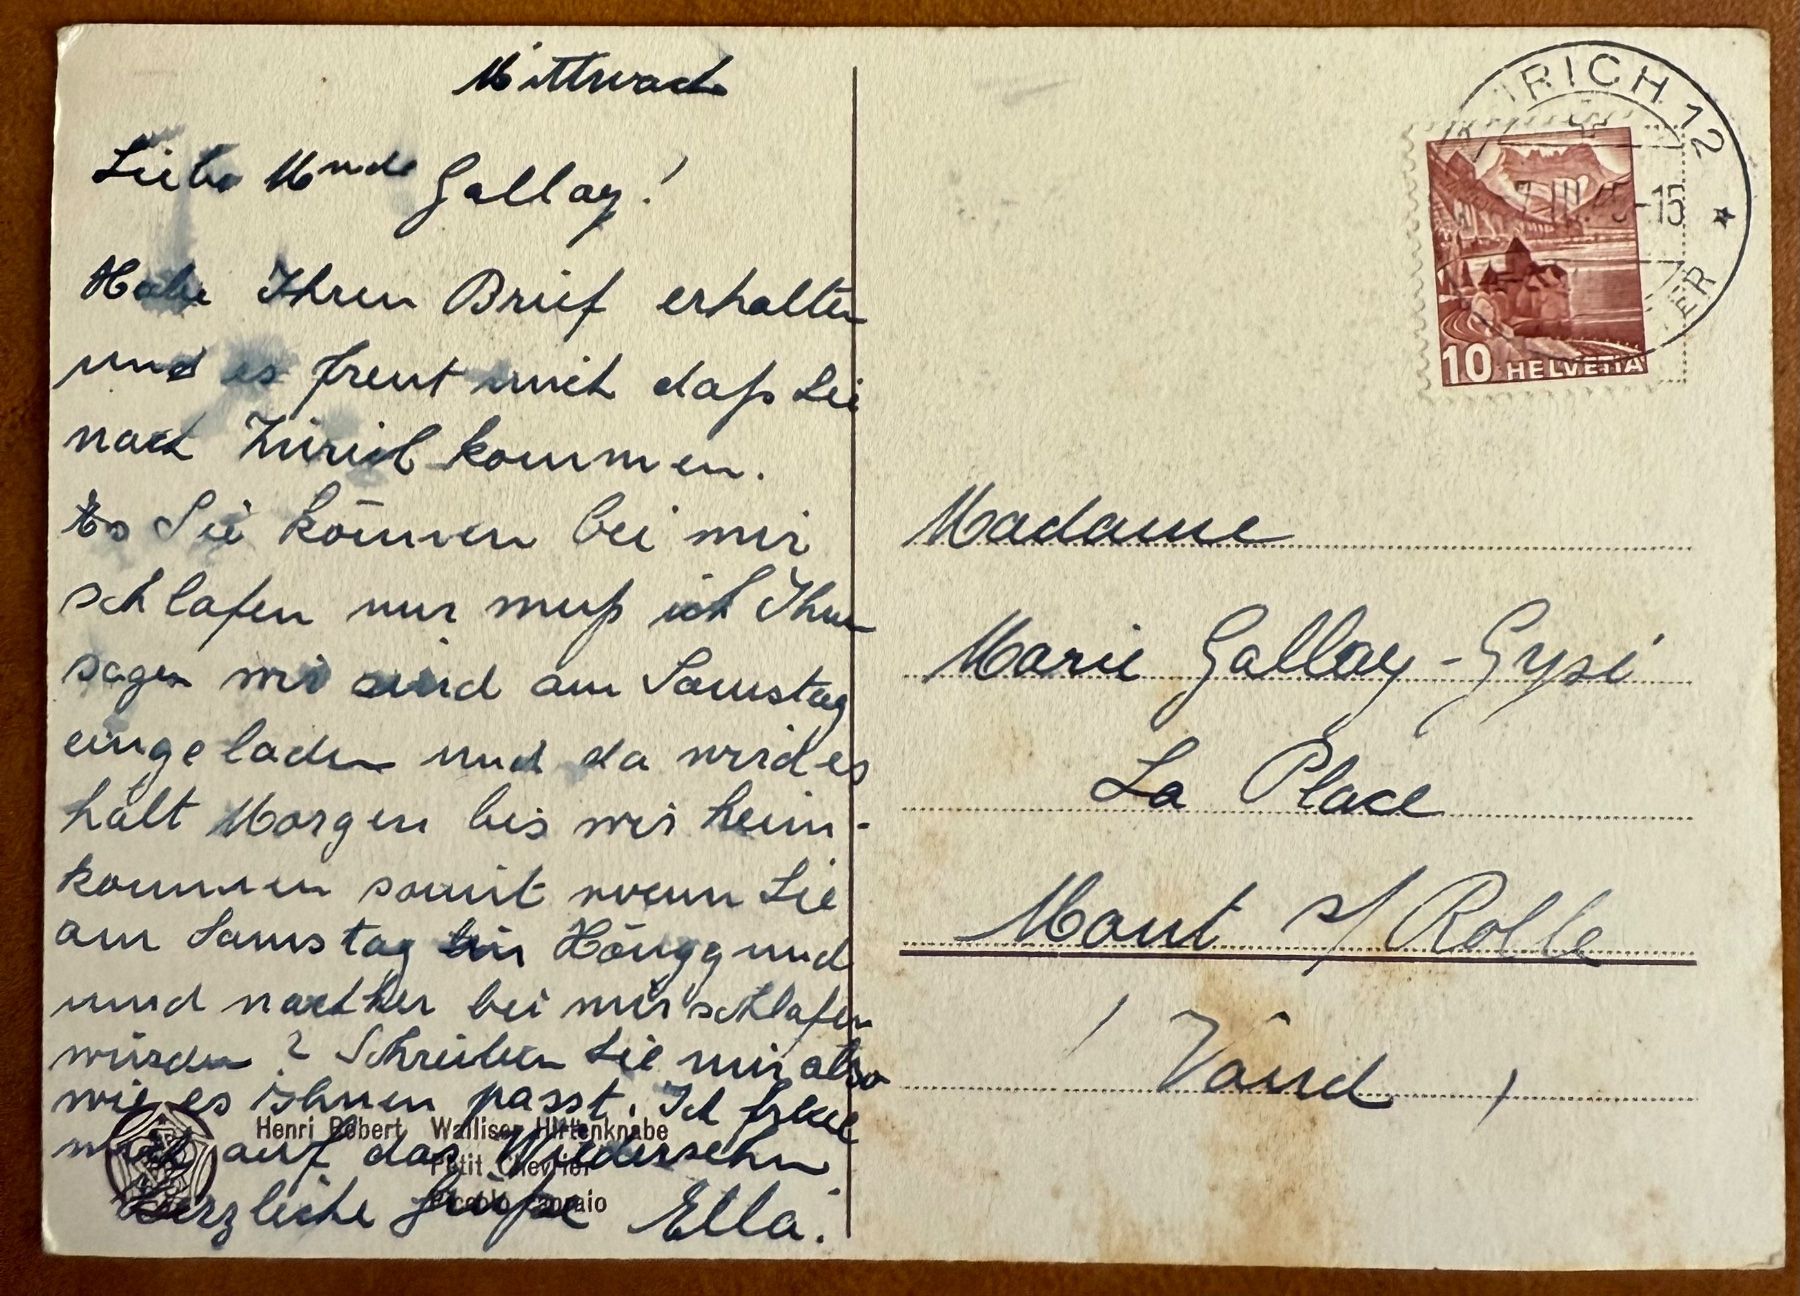 Mittwoch
Liebe Mnde Gallay!
Habe Ihren Brief erhalten
und es freut mich daß Sie
nach Zürich kommen.
Es Sie können bei mir
schlafen nur muß ich Ihnen
sagen wir sind am Samstag
eingeladen und da wird es
halt Morgen bis wir heim-
kommen somit wenn Sie
am Samstag in Höngg und
und nachher bei mir schlafen
würden? Schreiben Sie mir also
wie es ihnen passt. Ich freue
mich auf das Wiedersehn
Herzliche Grüße Ella.
Henri Robert Walliser Hirtenknabe
Petit Chevrier
Piccolo capraio
ZÜRICH 12
III.45-15
10 HELVETIA
Madame
Marie Gallay-Gysi
La Place
Mont s/Rolle
(Vaud)